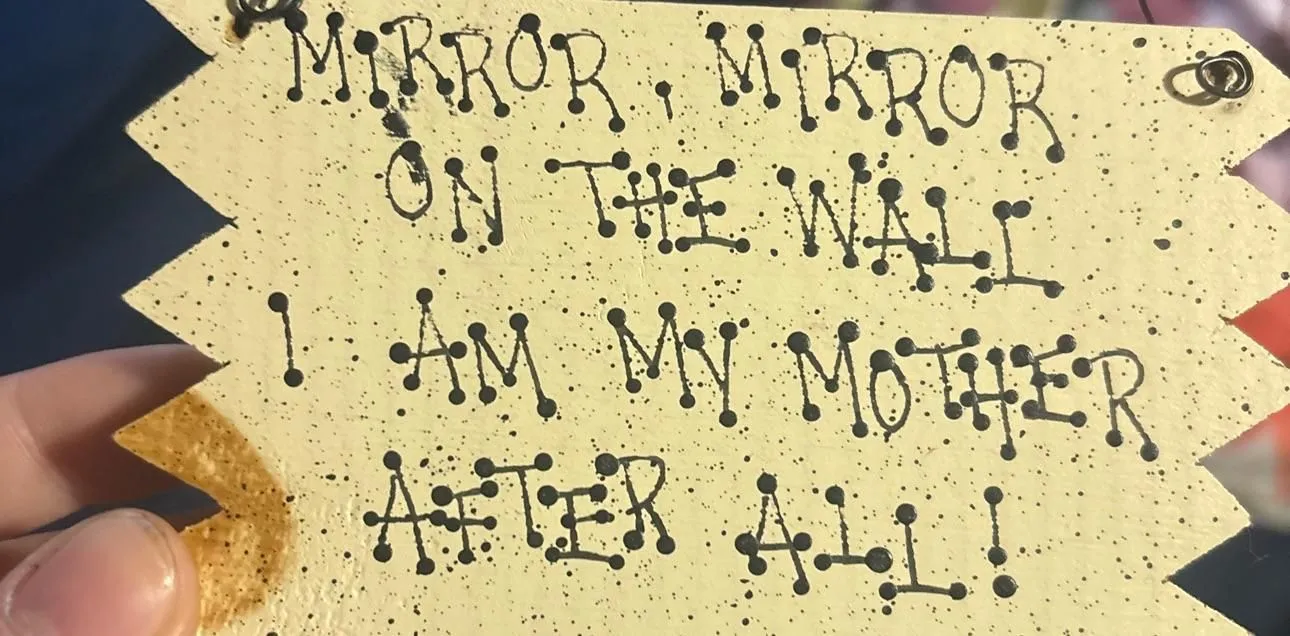 MIRROR, MIRROR
ON THE WALL
I AM MY MOTHER
AFTER ALL!